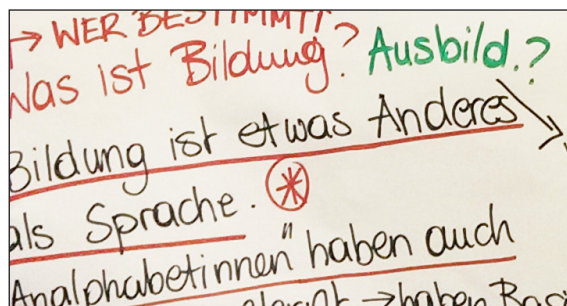 → WER BESTIMMT?
Was ist Bildung? Ausbild.?
Bildung ist etwas Anderes
als Sprache. *
Analphabetinnen" haben auch
→ haben